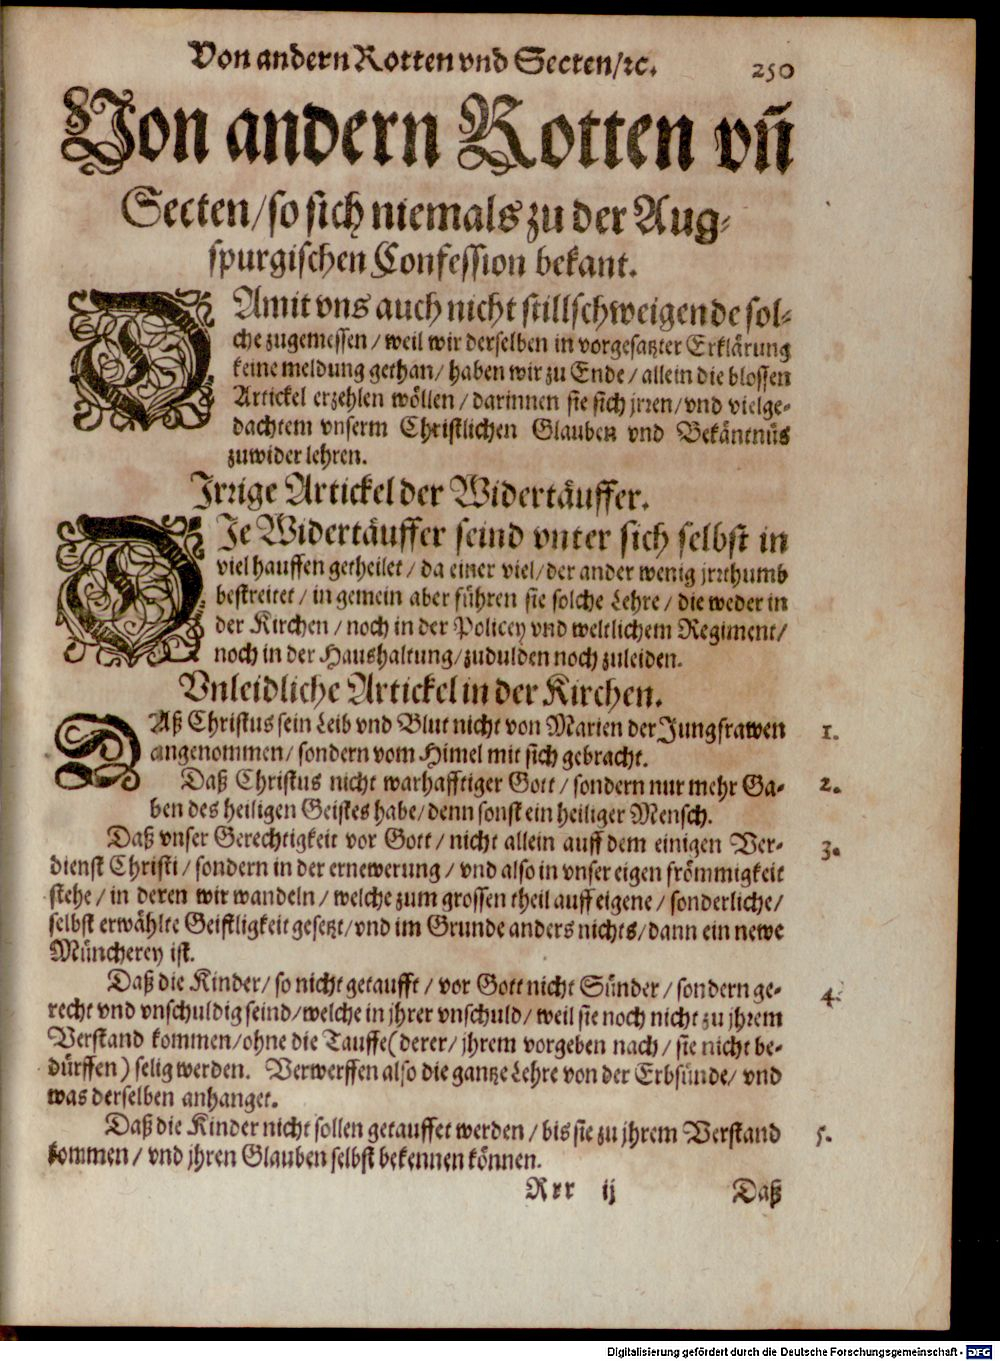 Von andern Rotten vnd Secten/ꝛc. 250
Von andern Rotten vñ
Secten/so sich niemals zu der Aug-
spurgischen Confession bekant.
DAmit vns auch nicht stillschweigende sol-
che zugemessen/weil wir derselben in vorgesatzter Erklärung
keine meldung gethan/haben wir zu Ende/allein die blossen
Artickel erzehlen wöllen/darinnen sie sich jrren/vnd vielge-
dachtem vnserm Christlichen Glauben vnd Bekäntnüs
zuwider lehren.
Irrige Artickel der Widertäuffer.
DIe Widertäuffer seind vnter sich selbst in
viel hauffen getheilet/da einer viel/der ander wenig jrrthumb
bestreitet/in gemein aber führen sie solche Lehre/die weder in
der Kirchen/noch in der Policey vnd weltlichem Regiment/
noch in der Haushaltung/zudulden noch zuleiden.
Vnleidliche Artickel in der Kirchen.
DAß Christus sein Leib vnd Blut nicht von Marien der Jungfrawen 1.
angenommen/sondern vom Himel mit sich gebracht.
Daß Christus nicht warhafftiger Gott/sondern nur mehr Ga- 2.
ben des heiligen Geistes habe/denn sonst ein heiliger Mensch.
Daß vnser Gerechtigkeit vor Gott/nicht allein auff dem einigen Ver- 3.
dienst Christi/sondern in der ernewerung/vnd also in vnser eigen frömmigkeit
stehe/in deren wir wandeln/welche zum grossen theil auff eigene/sonderliche/
selbst erwählte Geistligkeit gesetzt/vnd im Grunde anders nichts/dann ein newe
Müncherey ist.
Daß die Kinder/so nicht getaufft/vor Gott nicht Sünder/sondern ge- 4.
recht vnd vnschuldig seind/welche in jhrer vnschuld/weil sie noch nicht zu jhrem
Verstand kommen/ohne die Tauffe(derer/jhrem vorgeben nach/sie nicht be-
dürffen) selig werden. Verwerffen also die gantze Lehre von der Erbsünde/vnd
was derselben anhanget.
Daß die Kinder nicht sollen getauffet werden/bis sie zu jhrem Verstand 5.
kommen/vnd jhren Glauben selbst bekennen können.
Rrr ij Daß
Digitalisierung gefördert durch die Deutsche Forschungsgemeinschaft - DFG